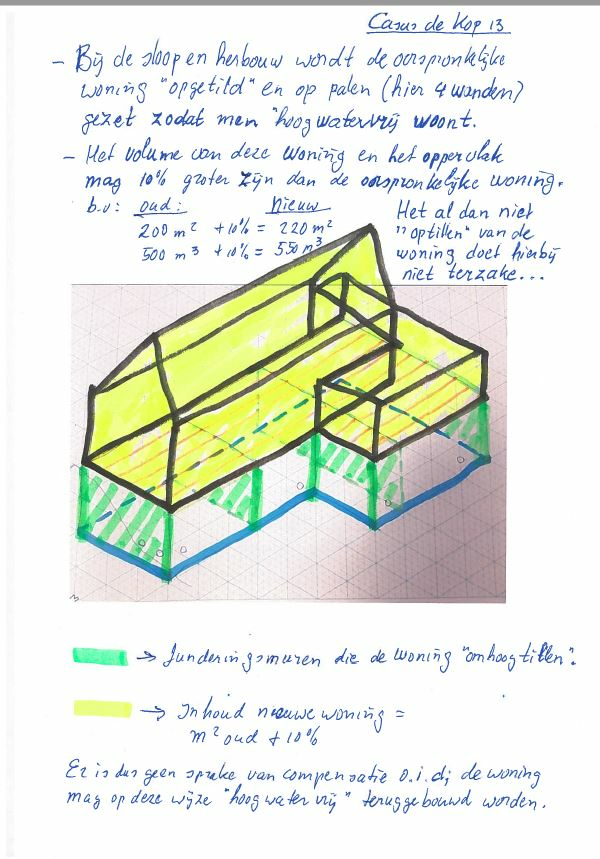 Casus de Kop 13
- Bij de sloop en herbouw wordt de oorspronkelijke
woning "opgetild" en op palen (hier 4 wanden)
gezet zodat men "hoogwatervrij woont.
- Het volume van deze woning en het oppervlak
mag 10% groter zijn dan de oorspronkelijke woning.
b.v: oud: Nieuw
200 m² +10% = 220 m²
500 m³ +10% = 550 m³
Het al dan niet
"optillen" van de
woning doet hierbij
niet terzake...
→ Funderingsmuren die de woning "omhoog tillen".
→ Inhoud nieuwe woning =
m² oud + 10%
Er is dus geen sprake van compensatie o.i.d; de woning
mag op deze wijze "hoogwatervrij" teruggebouwd worden.